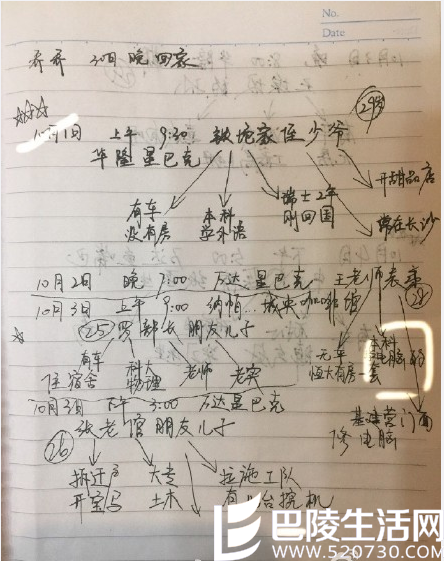 No.
Date
乔乔 30日 晚 回家
10月1日 上午 9:30 铁姥家侄少爷 29岁
华隆星巴克
有车
没有房
本科
学外语
瑞士2年
刚回国
开甜品店
常在长沙
10月2日 晚 7:00 万达星巴克 王老师表亲 28
10月3日 上午 9:00 纳帕...城央咖啡馆
25 罗部长 朋友儿子
有车
住宿舍
科大
物理
老师
老实
无车
恒大有房
本科
卖电脑的
基建营门面
修电脑
10月3日 下午 3:00 万达星巴克
26 张老官 朋友儿子
拆迁户
开宝马
大专
土木
拉施工队
有几台挖机
巴陵生活网
www.520730.com